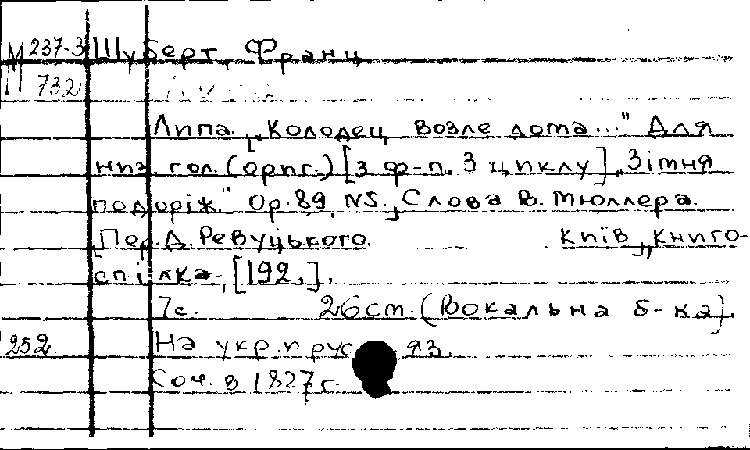 М 237-3 Шуберт, Франц
732
Липа. „Колодец возле дома..." Для
низ. гол. (ориг.) [з ф-п. З циклу] „Зімня
подоріж." Op. 89, N5. Слова В. Мюллера.
[Пер. Д. Ревуцького. Київ], Книго-
спілка, [192.].
7с. 26 см. (Вокальна б-ка).
252 На укр. и рус. яз.
Соч. в 1827 г.